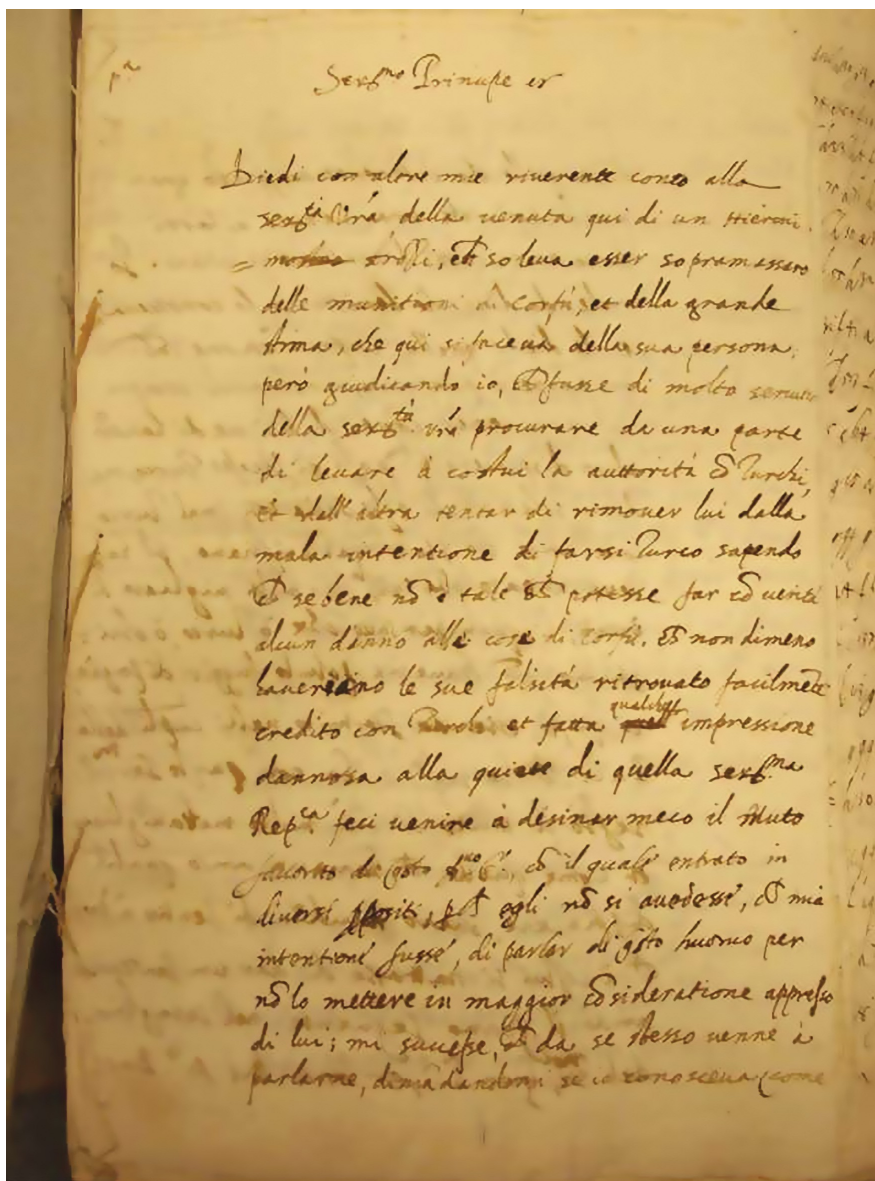 p.a
Ser.mo Principe etc
Diedi con altre mie riverente conto alla
Ser.tà V.ra della venuta qui di un Hieroni
= mo, ch̃ soleva esser sopramassaro
delle munitioni di Corfù, et della grande
stima, che qui si faceva della sua persona,
però giudicando io, ch̃ fusse di molto servitio
della Ser.tà V.ra procurare da una parte
di levare à costui la auttorità cõ Turchi,
et dall'altra tentar di rimover lui dalla
mala intentione di farsi Turco sapendo
ch̃ se bene nõ è tale ch̃ potesse far cõ verità
alcun danno alle cose di Corfù, ch̃ non dimeno
haveriano le sue falsità ritrovato facilmẽte
credito con Turchi et fatta qualche impressione
dannosa alla quiete di quella Ser.ma
Rep.ca feci venire à desinar meco il Muto
favorito di q̃sto S.r, cõ il quale entrato in
diversi ꝓpositi, ꝑch̃ egli nõ si avedesse, ch̃ mia
intentione fusse, di parlar di q̃sto huomo per
nõ lo mettere in maggior cõsideratione appresso
di lui; mi successe, ch̃ da se stesso venne à
parlarne, dimãdandomi se io conosceva (come